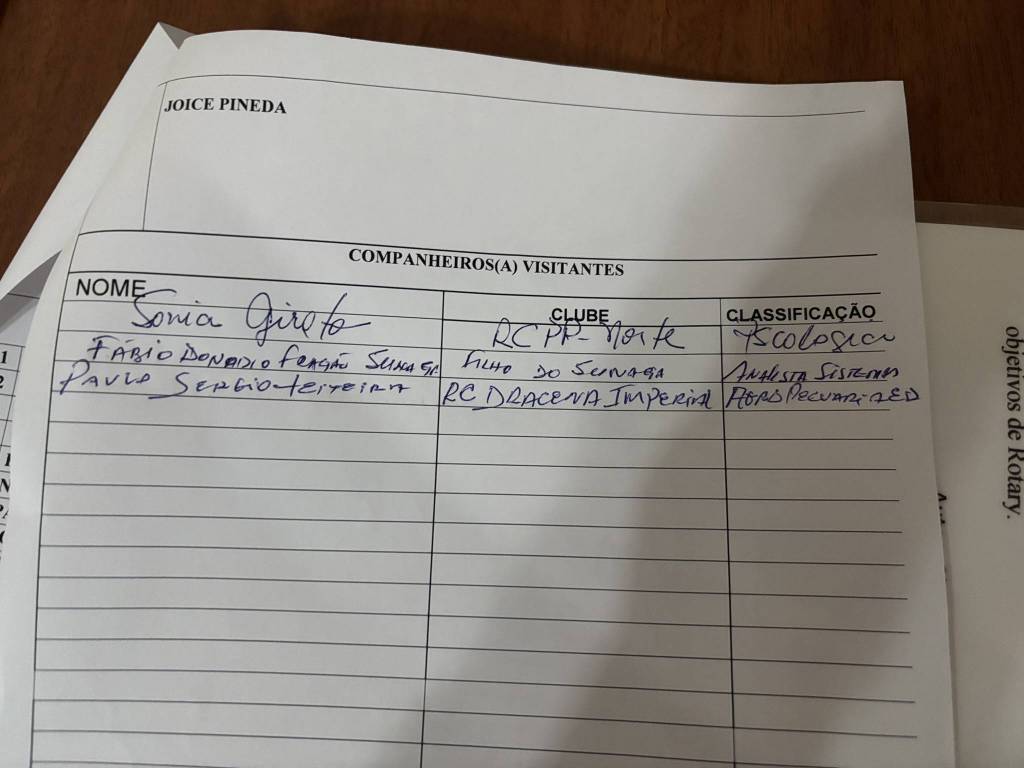 JOICE PINEDA
COMPANHEIROS(A) VISITANTES
NOME CLUBE CLASSIFICAÇÃO
Sonia Giroto RCPP-Norte Psicologia
FÁBIO DONADIO FRAGÃO SUNAGA FILHO DO SUNAGA ANALISTA SISTEMAS
PAULO SERGIO RC DRACENA IMPERIAL
objetivos de Rotary.
1
2